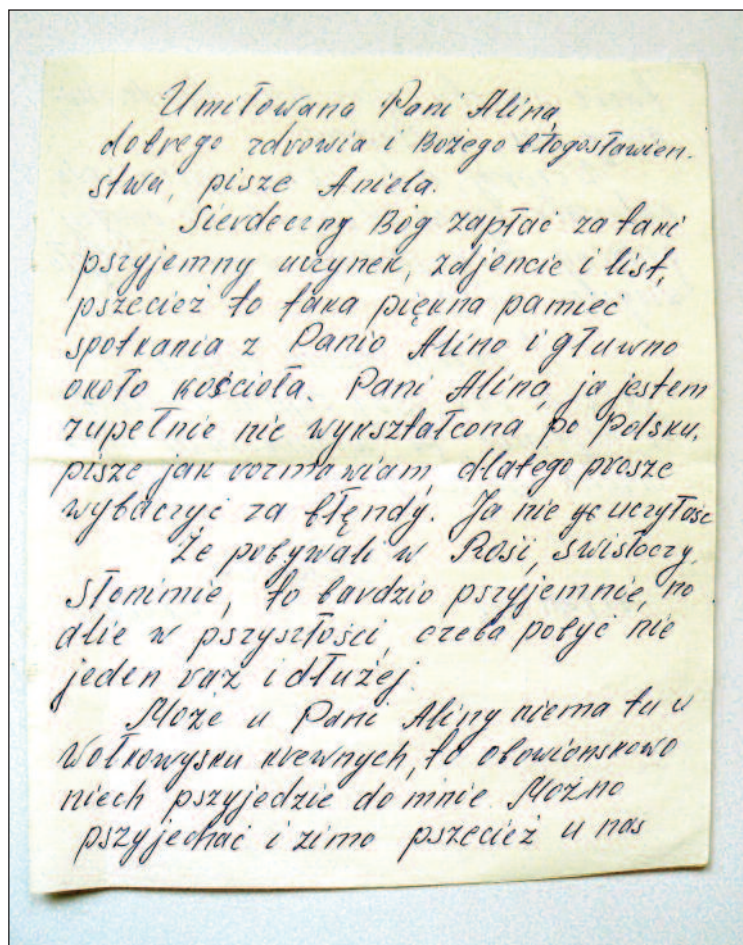 Umiłowana Pani Alina,
dobrego zdrowia i Bożego błogosławien-
stwa, pisze Aniela.
Sierdeczny Bóg zapłać za taki
pszyjemny uczynek, zdjencie i list,
pszecież to taka piękna pamieć
spotkania z Panio Alino i głuwno
około kościoła. Pani Alina, ja jestem
zupełnie nie wykształcona po Polsku,
pisze jak rozmawiam, dlatego prosze
wybaczyć za błędy. Ja nie uczyłość
Że pobywali w Rosi, Swisłoczy,
Słonimie, to bardzio pszyjemnie, no
dlie w pszyszłości, czeba pobyć nie
jeden raz i dłużej.
Może u Pani Aliny niema tu w
Wołkowysku krewnych, to obowionskowo
niech pszyjedzie do mnie. Możno
pszyjechać i zimo pszecież u nas